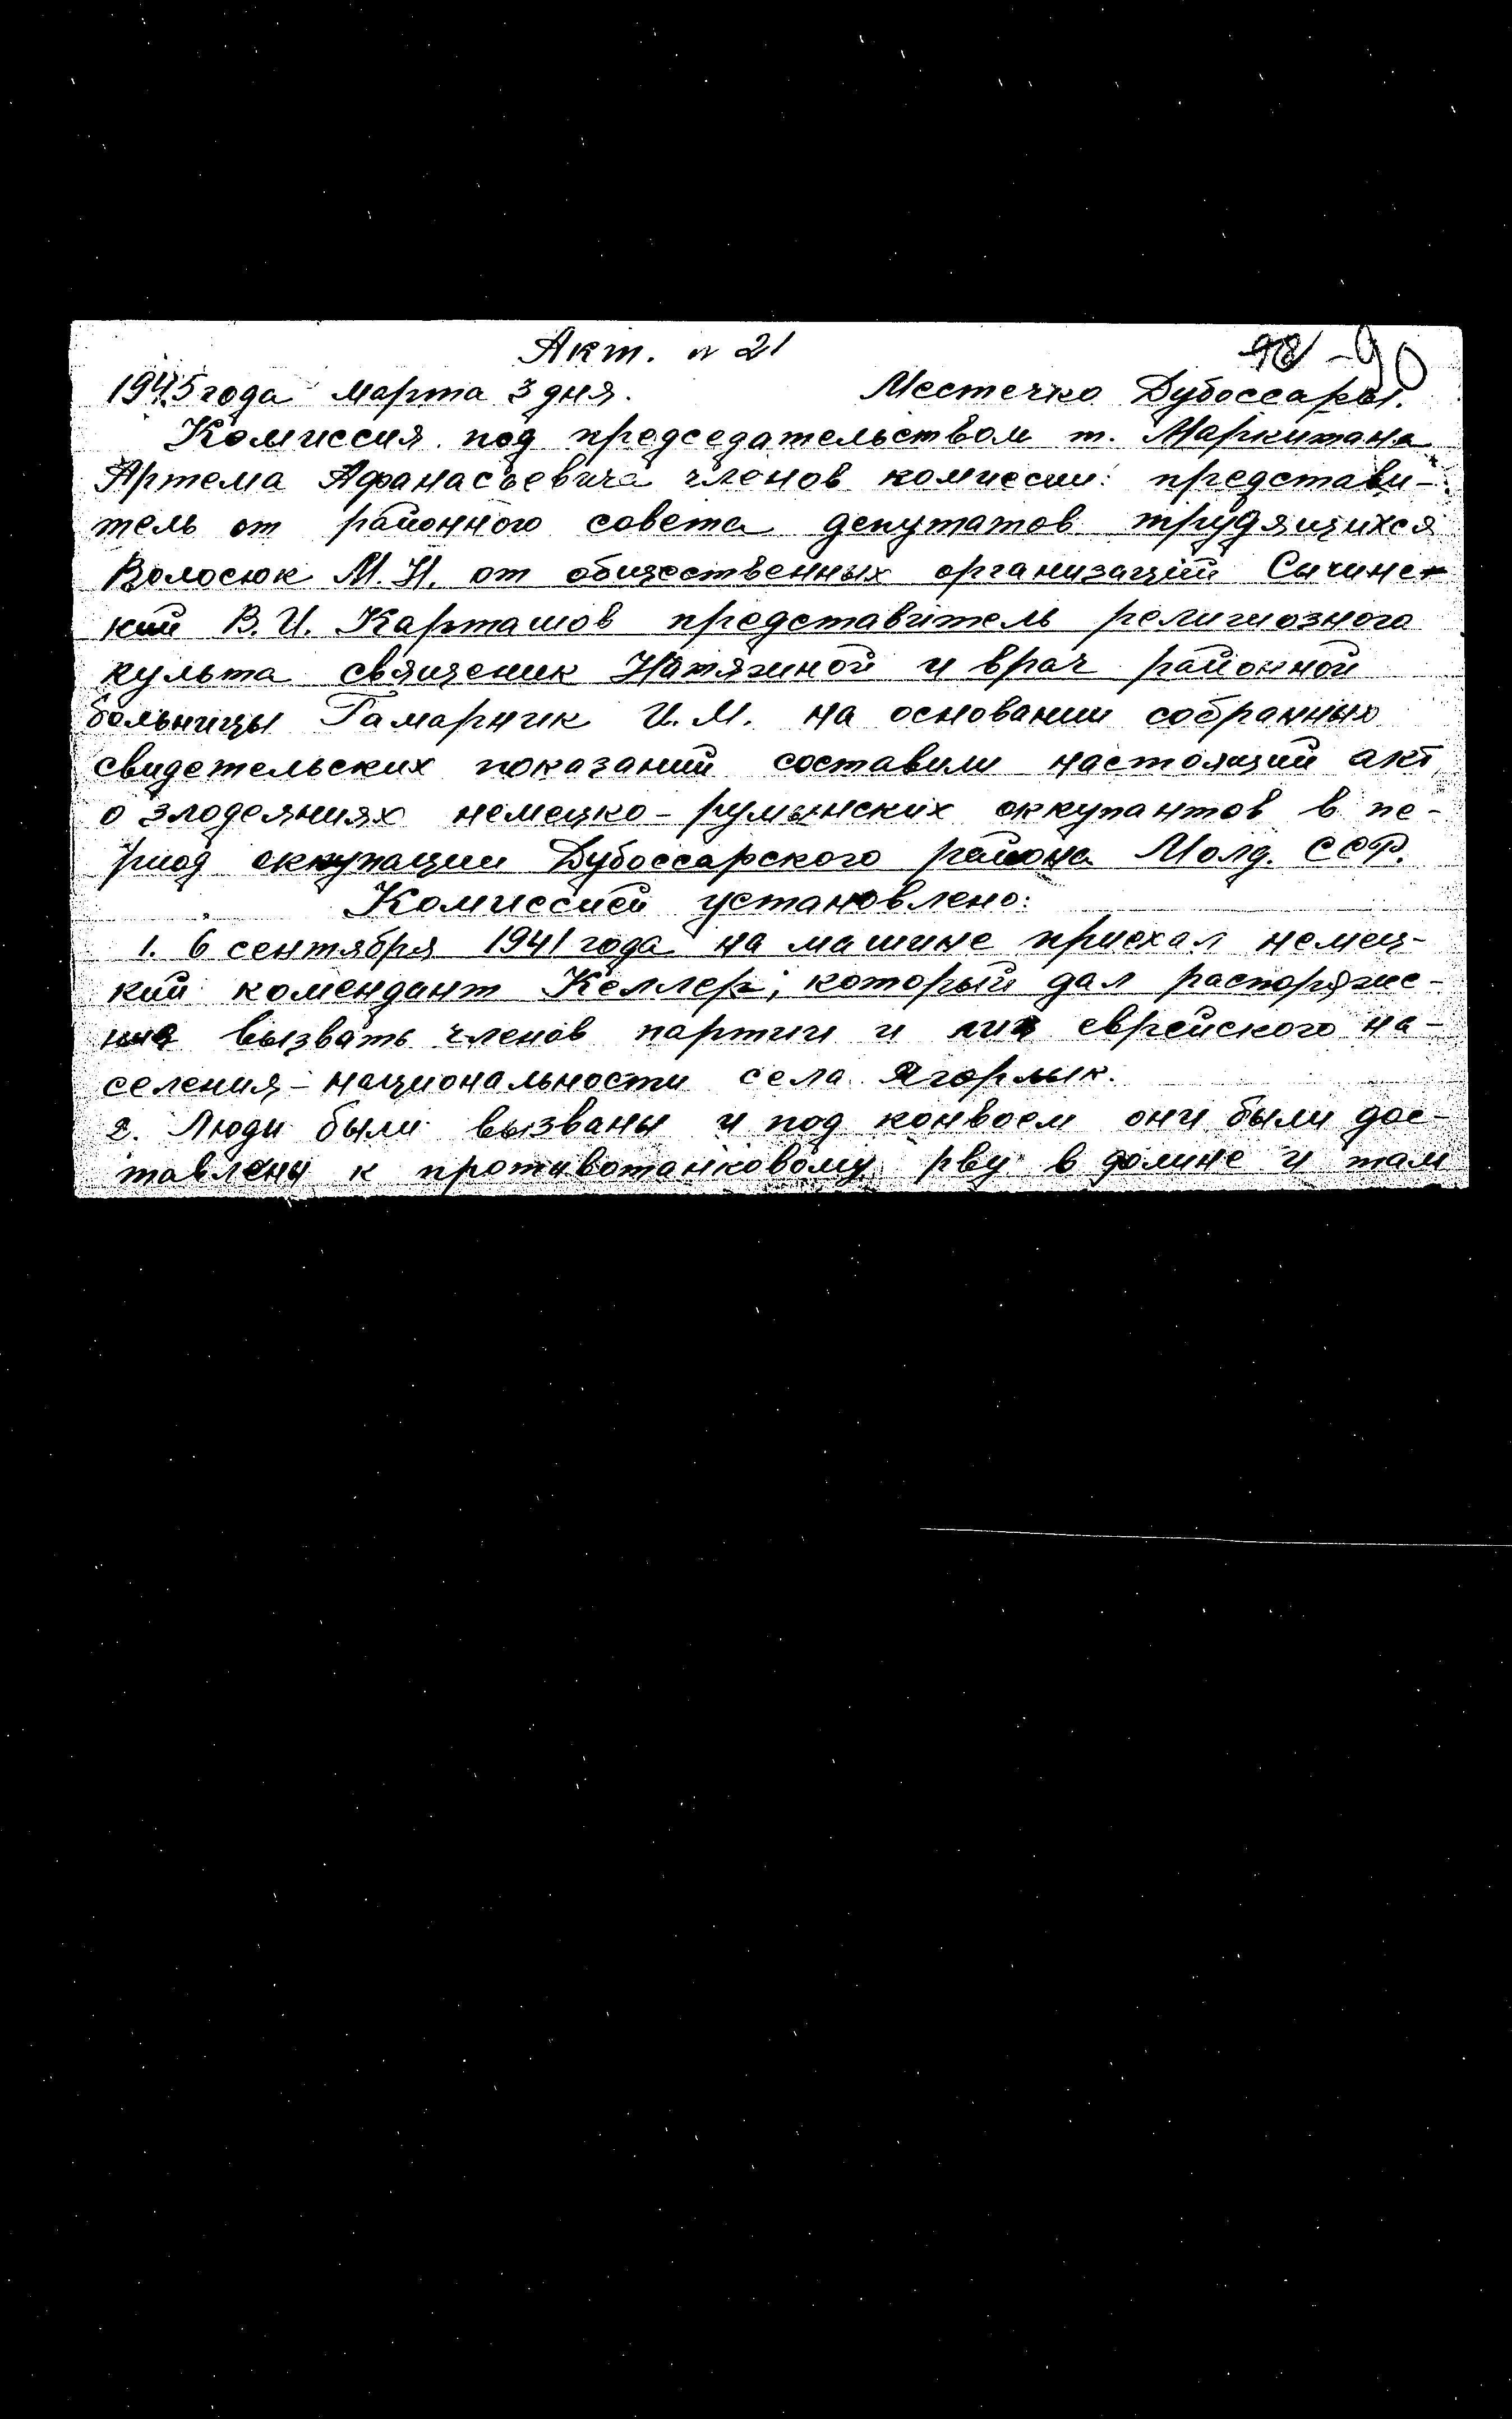 Акт. № 21
-90
1945 года марта 3 дня. Местечко Дубоссары.
Комиссия под председательством т. Маркитана
Артема Афанасьевича членов комиссии: представи-
тель от районного совета депутатов трудящихся
Волосюк М.Н. от общественных организаций Сичинс-
кий В.И. Карташов представитель религиозного
культа священик Натяжной и врач районной
больницы Гамарник И.М. на основании собранных
свидетельских показаний составили настоящий акт,
о злодеяниях немецко-румынских оккупантов в пе-
риод оккупации Дубоссарского района Молд. ССР.
Комиссией установлено:
1. 6 сентября 1941 года на машине приехал немец-
кий комендант Келлер, который дал распоряже-
ние вызвать членов партии и лиц еврейского на-
селения - национальности села Ягорлык.
2. Люди были вызваны и под конвоем они были дос-
тавлены к противотанковому рву в долине и там